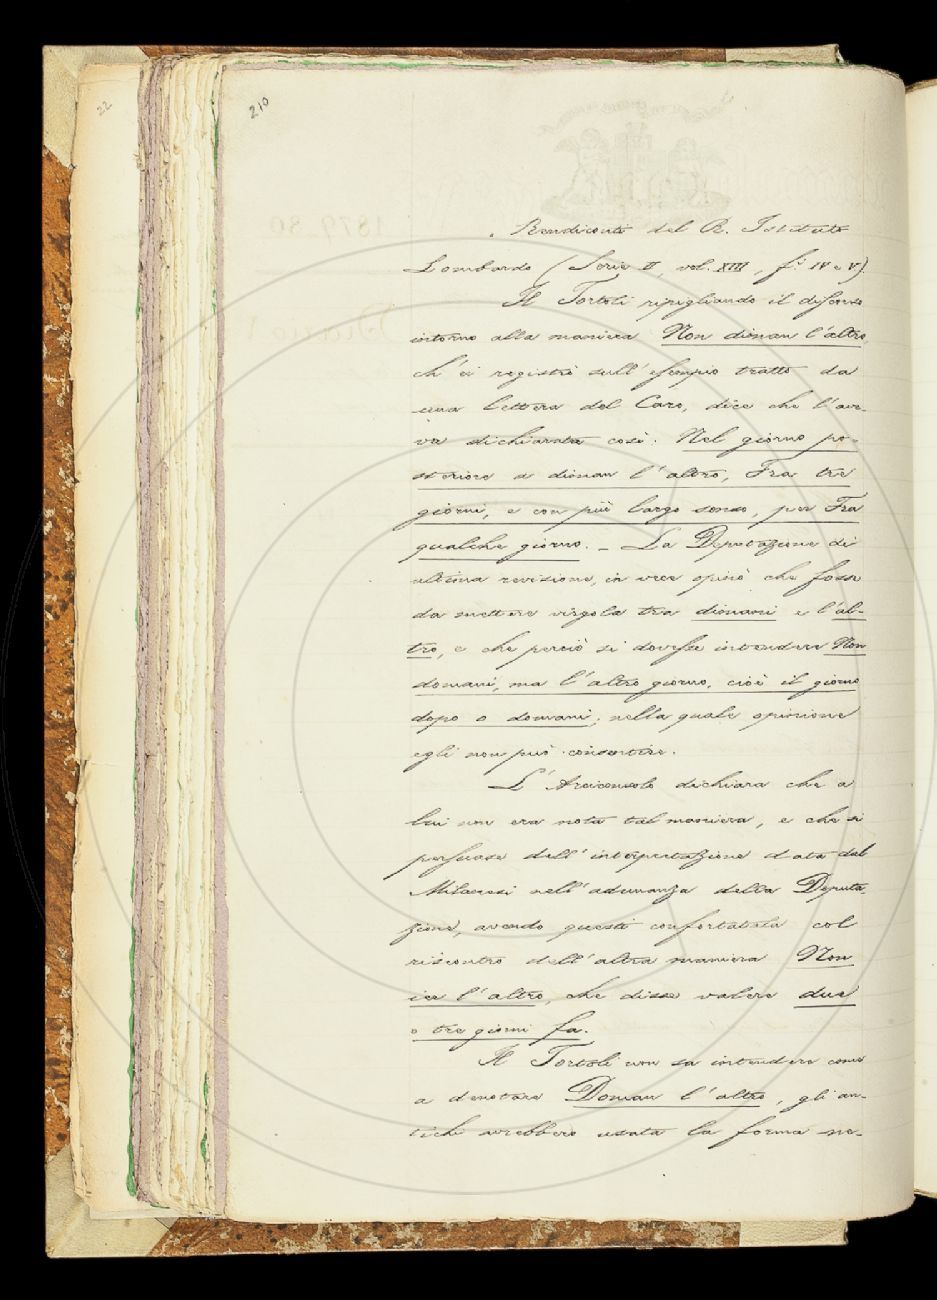 22
210
Rendiconti del R. Istituto
Lombardo (Serie II, vol. XIII, f.i IV e V).
Il Tortoli ripigliando il discorso
intorno alla maniera Non diman l'altro
ch'ei registrò sull'esempio tratto da
una lettera del Caro, dice che l'ave-
va dichiarata così: Nel giorno po-
steriore a diman l'altro, Fra tre
giorni, e con più largo senso, per Fra
qualche giorno. – La Deputazione di
ultima revisione, in vece opinò che fosse
da mettere virgola tra dimani e l'al-
tro, e che perciò si dovesse intendere Non
domani, ma l'altro giorno, cioè il giorno
dopo a domani; nella quale opinione
egli non può consentire.
L'Arciconsolo dichiara che a
lui non era nota tal maniera, e che si
persuase dell'interpretazione data dal
Milanesi nell'adunanza della Deputa-
zione, avendo questi confortatala col
riscontro dell'altra maniera Non
ier l'altro, che disse valere due
o tre giorni fa.
Il Tortoli non sa intendere come
a denotare Doman l'altro, gli an-
tichi avrebbero usata la forma ne-